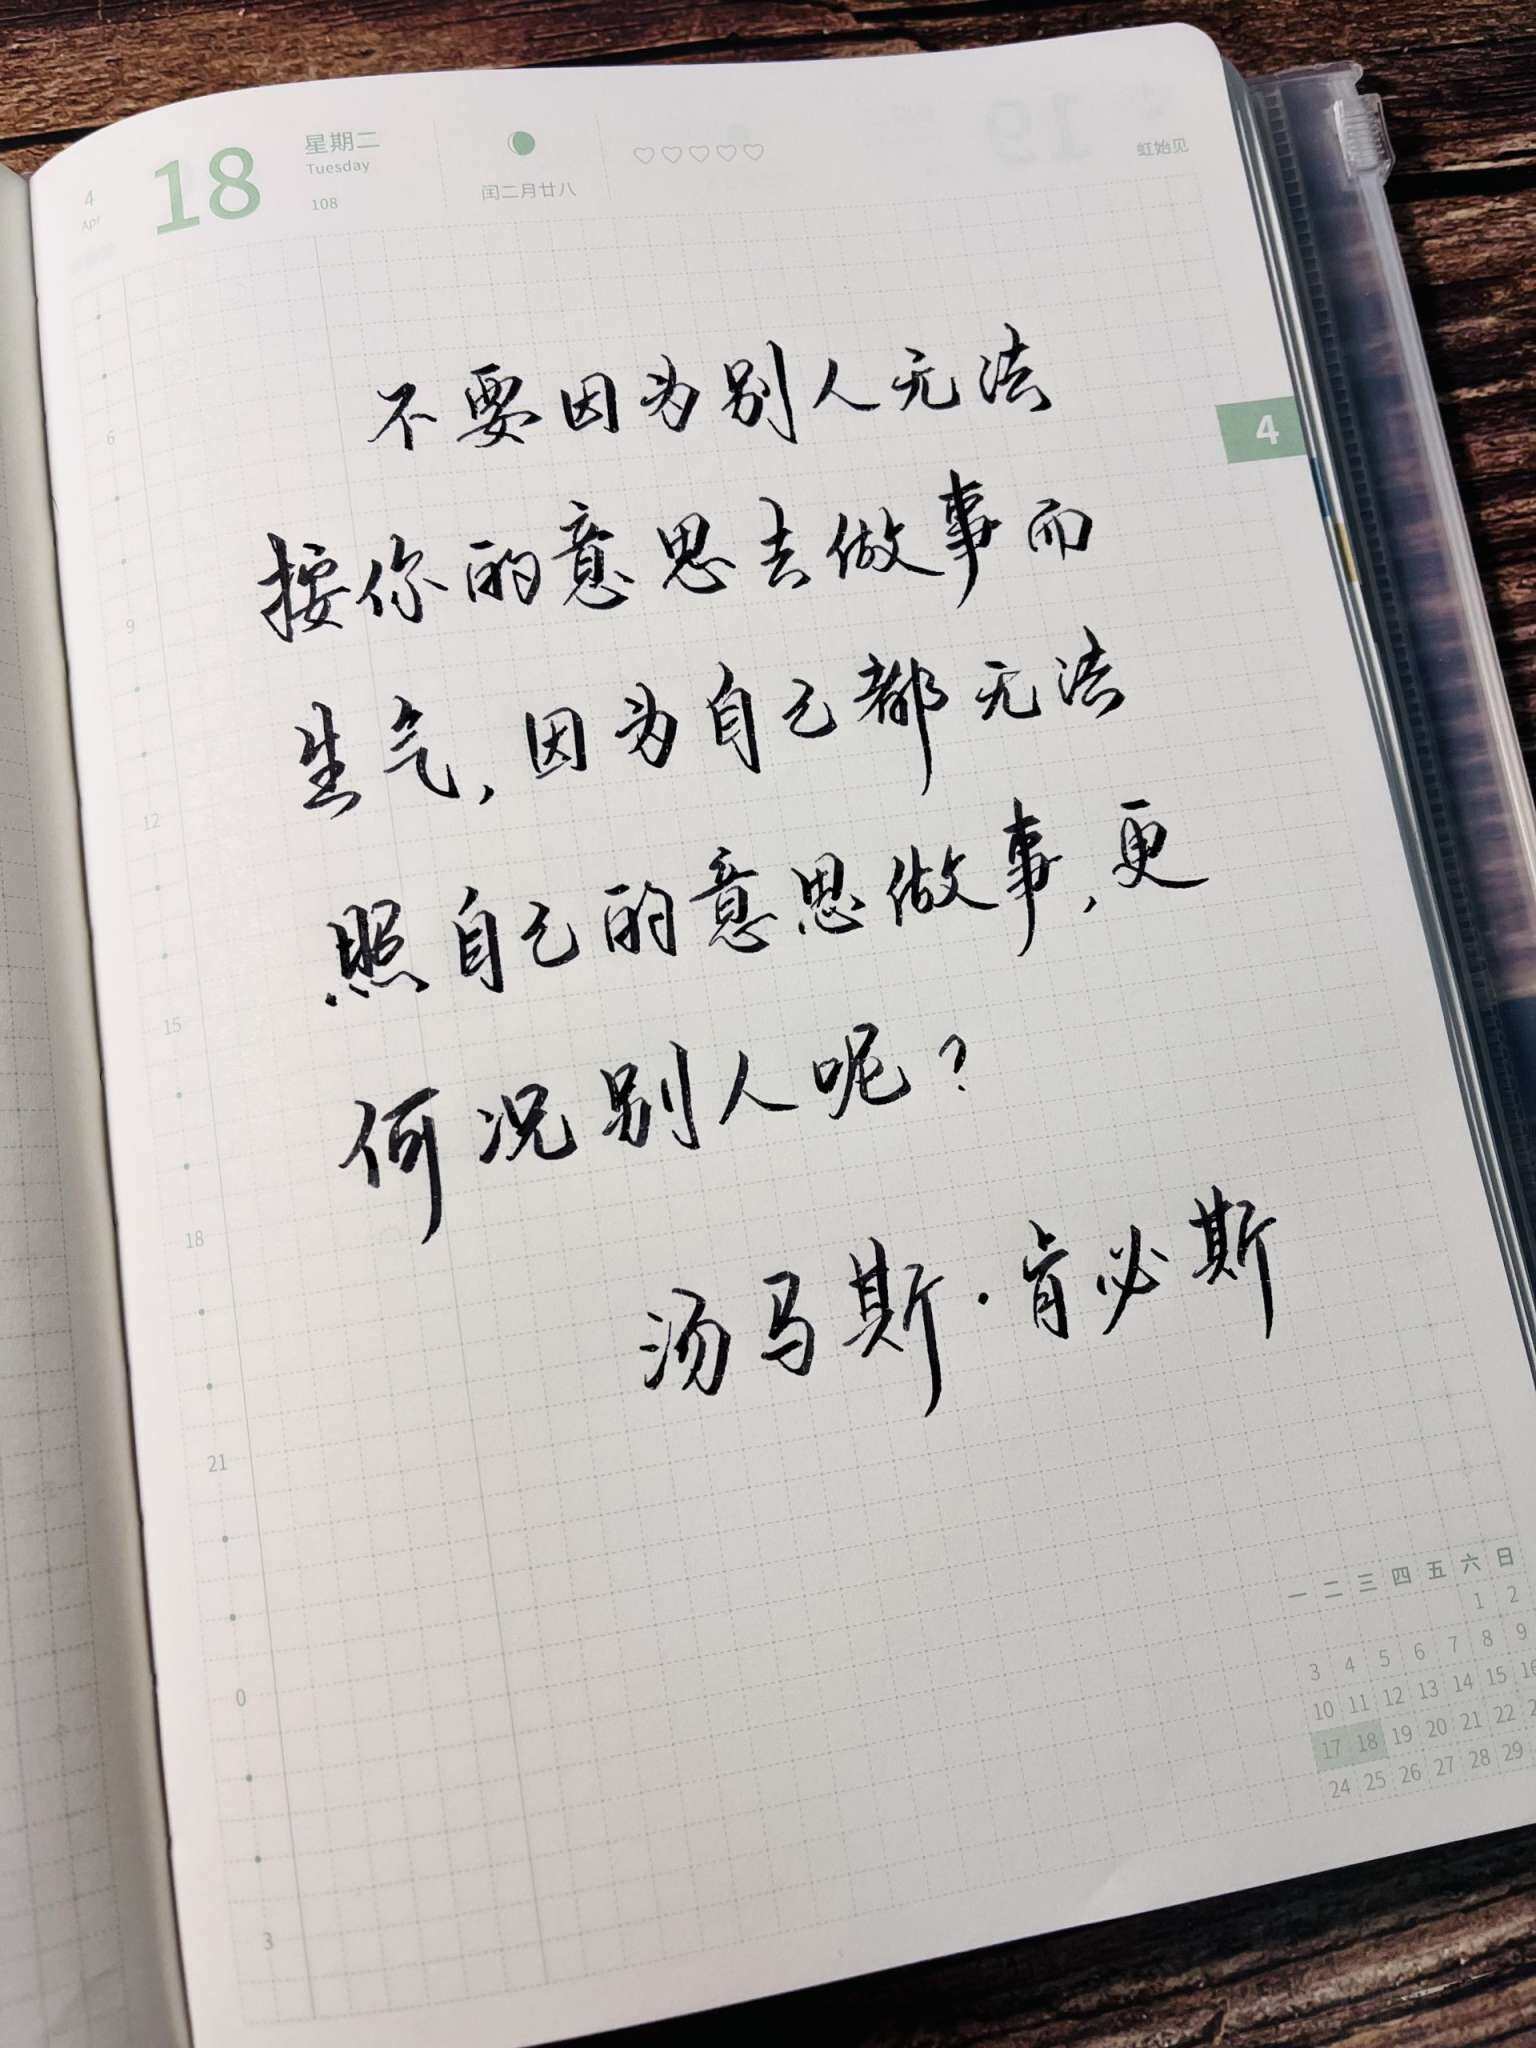 4
Apr
18
星期二
Tuesday
108
闰二月廿八
虹始见
4
不要因为别人无法
按你的意思去做事而
生气,因为自己都无法
照自己的意思做事,更
何况别人呢?
汤马斯·肯必斯
6
9
12
15
18
21
0
3
一 二 三 四 五 六 日
1 2
3 4 5 6 7 8 9
10 11 12 13 14 15 16
17 18 19 20 21 22
24 25 26 27 28 29